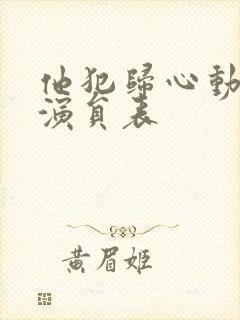 他犯歸心動
演員表
黄眉姬